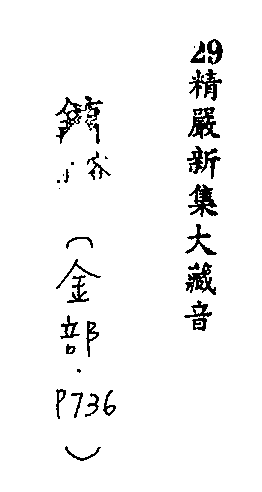 29精嚴新集大藏音
（金部．P736）